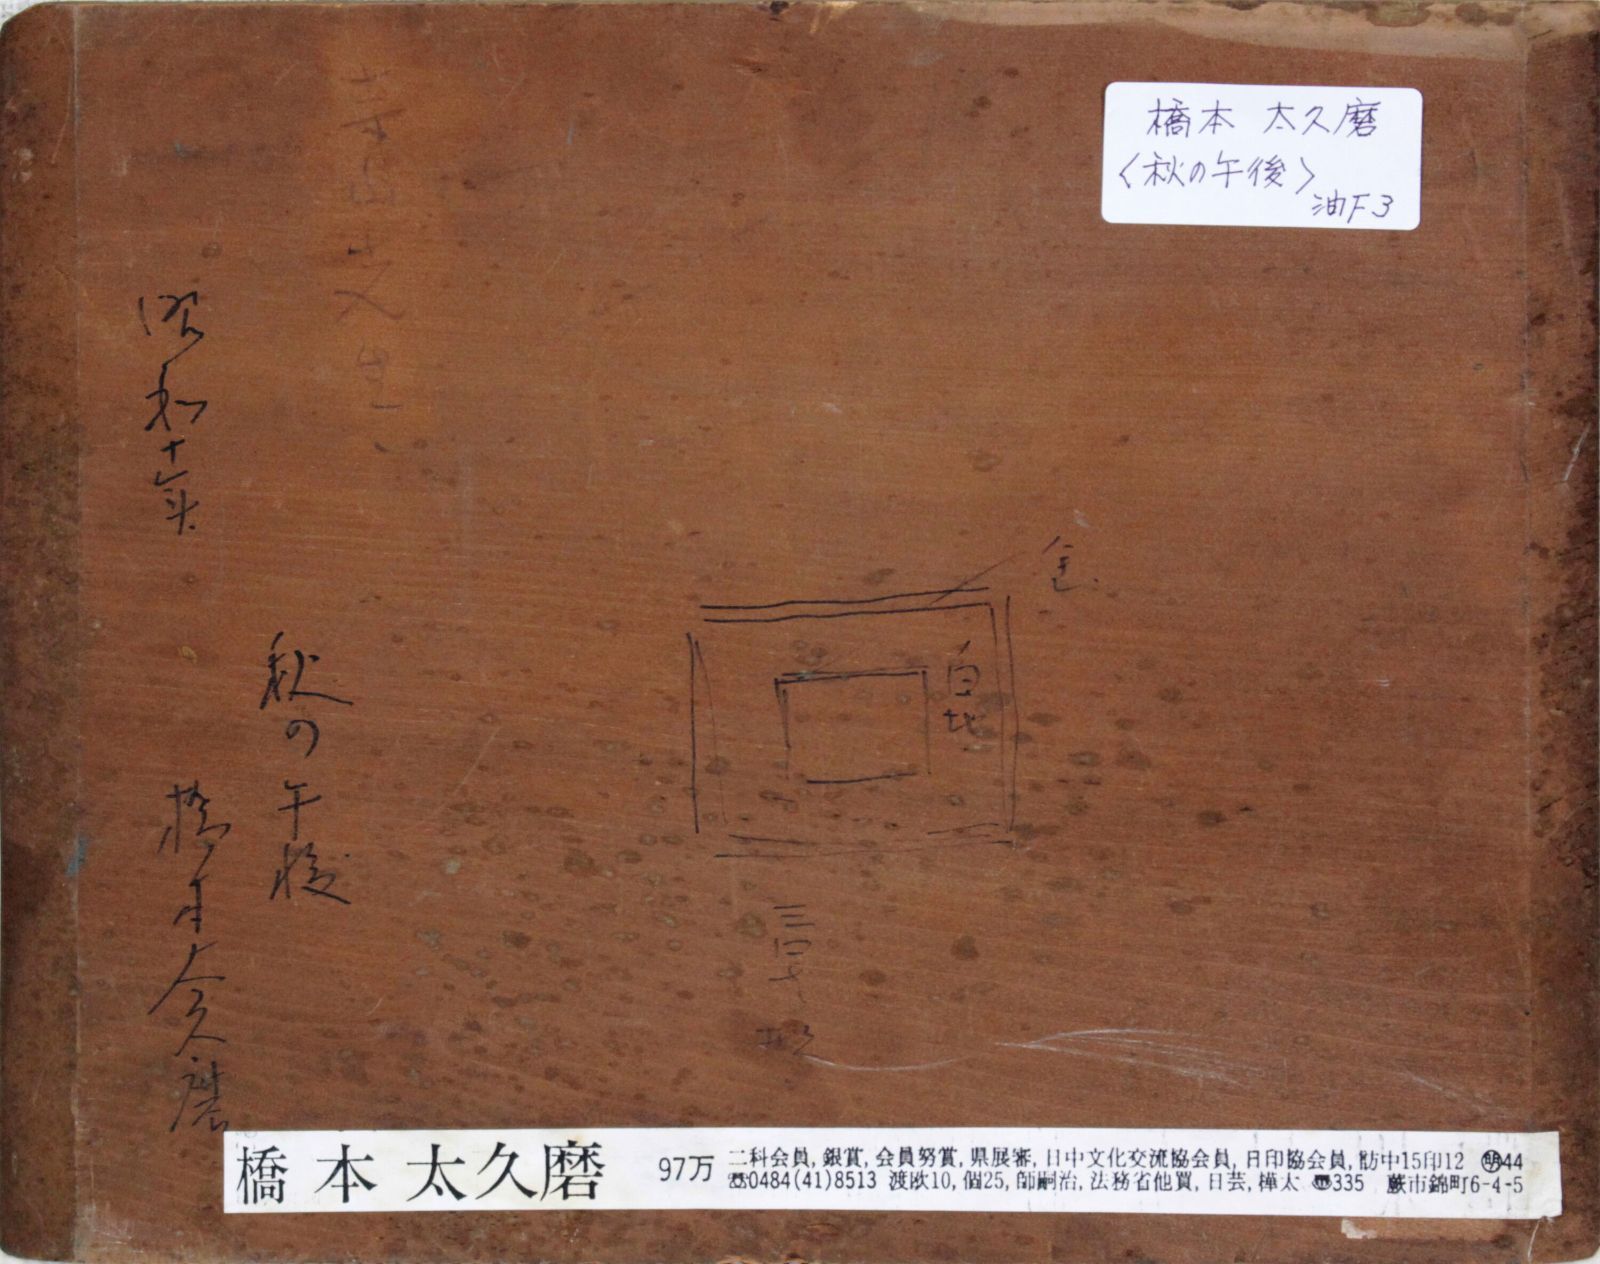 橋本 太久磨
〈秋の午後〉
油F3
昭和十年
秋の午後
橋本太久磨
金
白地
橋本 太久磨 97万 二科会員,銀賞,会員努賞,県展審,日中文化交流協会員,日印協会員,訪中15印12 ㊔44
☎0484(41)8513 渡欧10,個25,師嗣治,法務省他買,日芸,樺太 〠335 蕨市錦町6-4-5